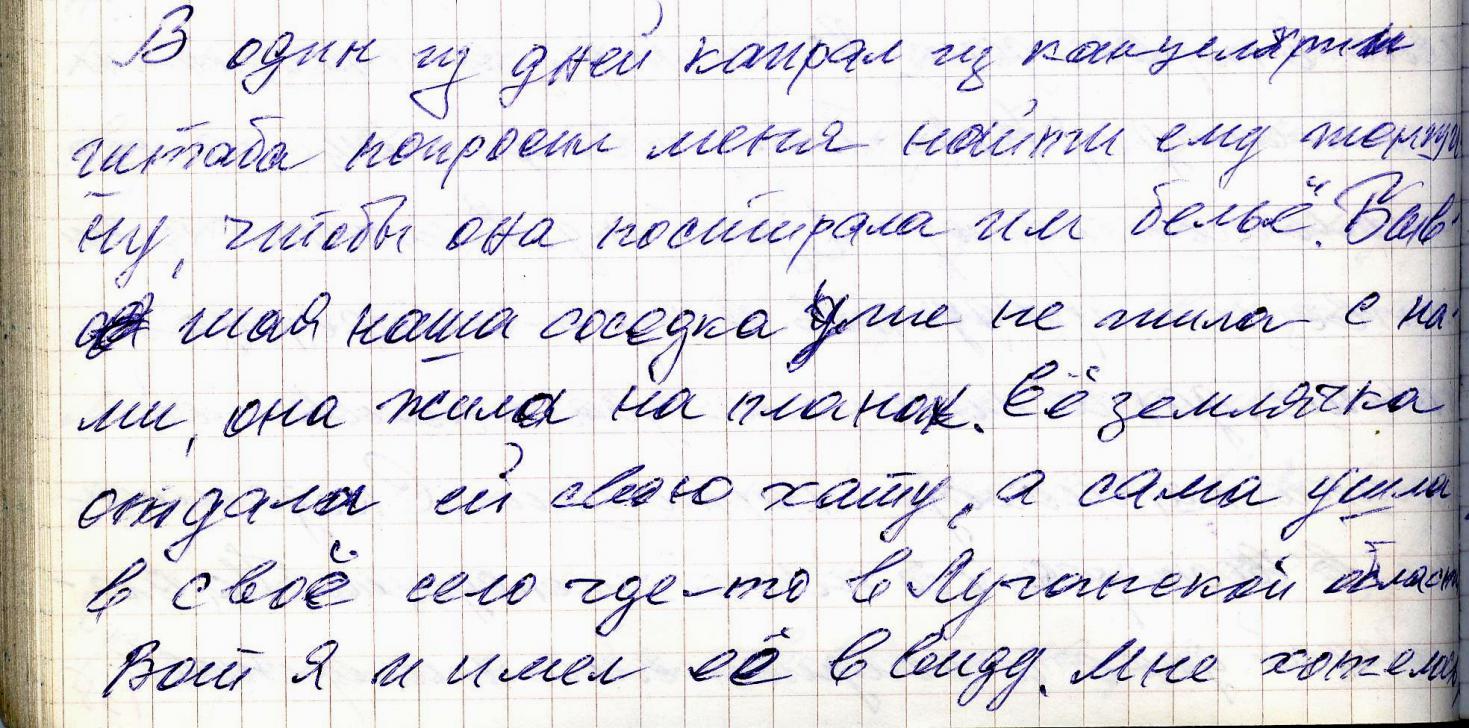 В один из дней капрал из канцелярии
штаба попросил меня найти ему женщи
ну, чтобы она постирала им бельё. Быв-
шая наша соседка уже не жила с на-
ми, она жила на планах. Её землячка
отдала ей свою хату, а сама ушла
в своё село где-то в Луганской области
Вот я и имел её в виду. Мне хотелось